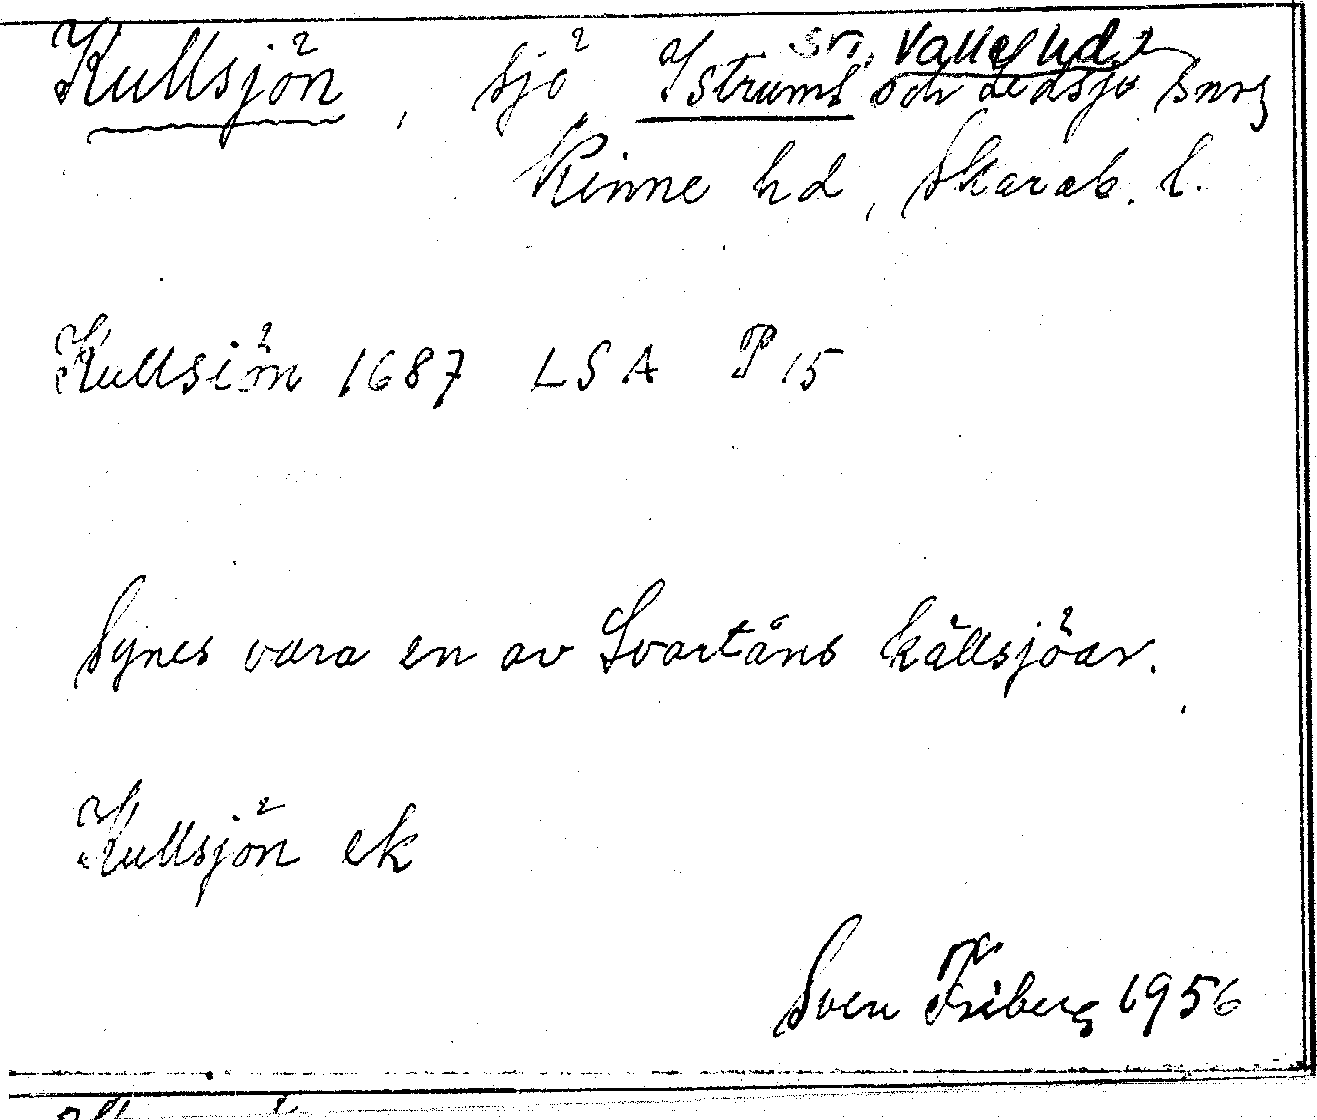 Kullsjön, sjö Istrums sn, Valle hd, och Ledsjö snr,
Kinne hd, Skarab. l.
Kullsiön 1687 LSA P 15
Synes vara en av Svartåns källsjöar.
Kullsjön ek
Sven Friberg 1956